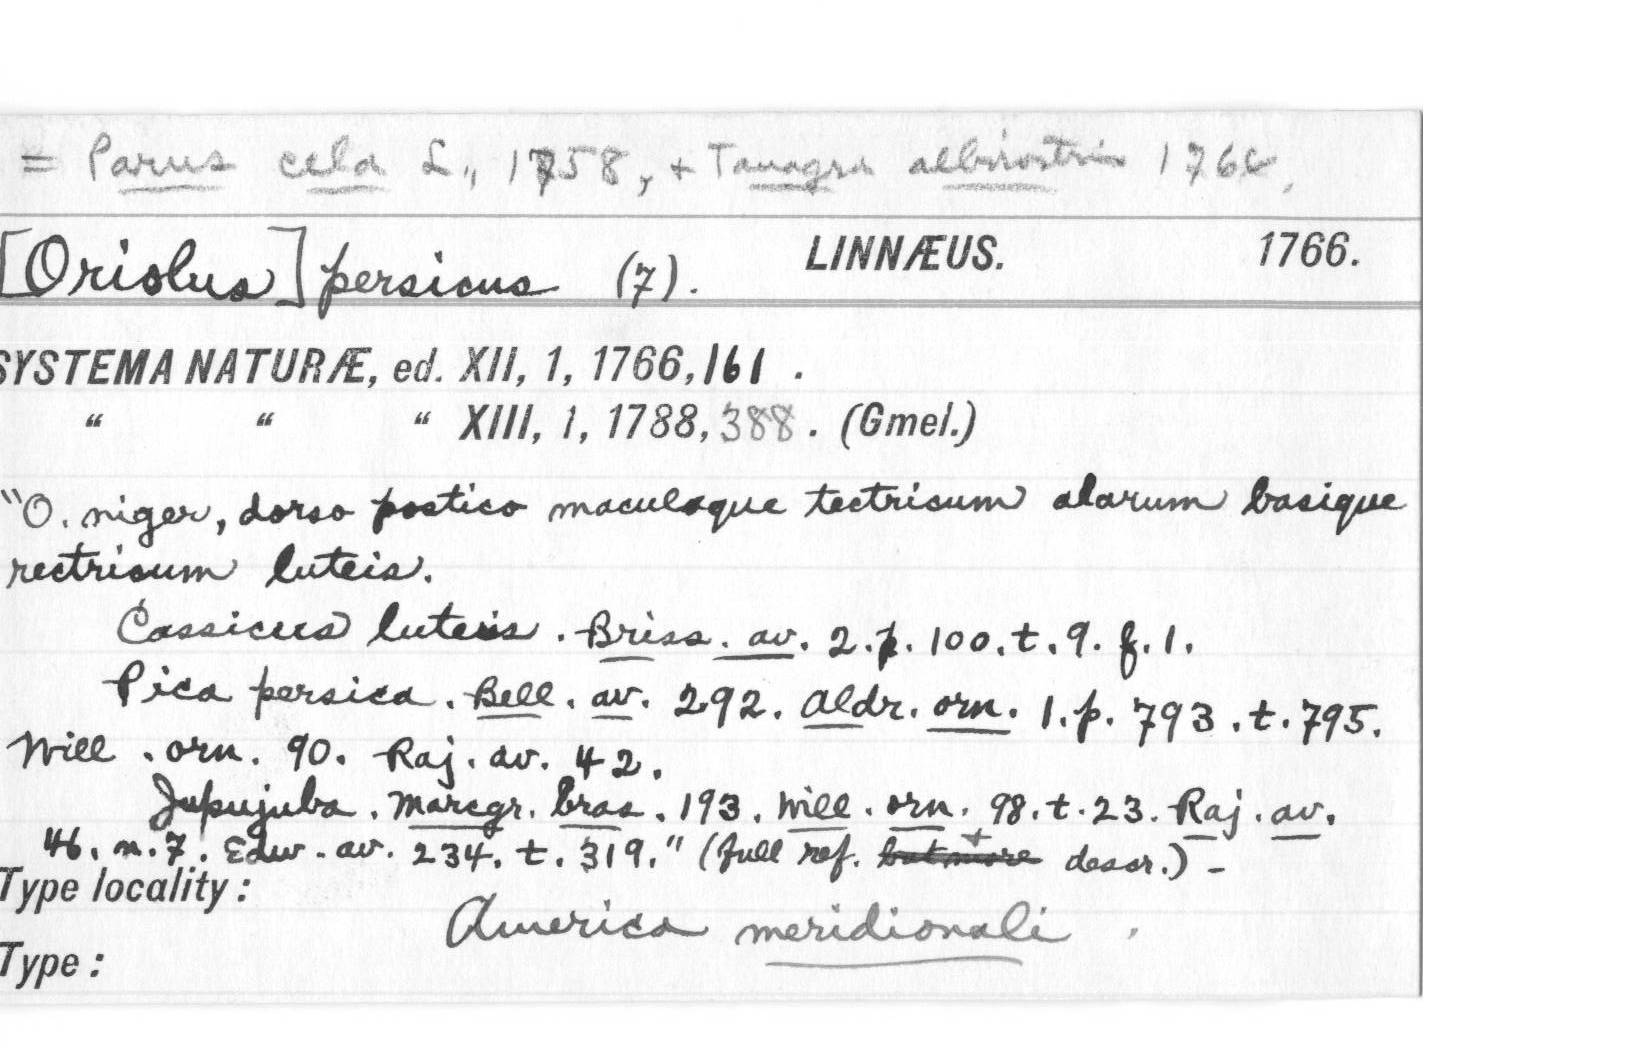 = Parus cela L., 1758, + Tanagra albirostris 1764.
[Oriolus] persicus (7). LINNÆUS. 1766.
SYSTEMA NATURÆ, ed. XII, 1, 1766, 161 .
“ “ “ XIII, 1, 1788, 388 . (Gmel.)
"O. niger, dorso postico maculaque tectricum alarum basique
rectricum luteis.
Cassicus luteus . Briss. av. 2. p. 100. t. 9. f. 1.
Pica persica . Bell. av. 292. Aldr. orn. 1. p. 793 . t. 795.
Will . orn. 90. Raj. av. 42.
Jupujuba . Marcgr. bras. 193. Will . orn. 98. t. 23. Raj. av.
46. n. 7. Edw. av. 234. t. 319." (full ref. + descr.) -
Type locality :
America meridionali .
Type :